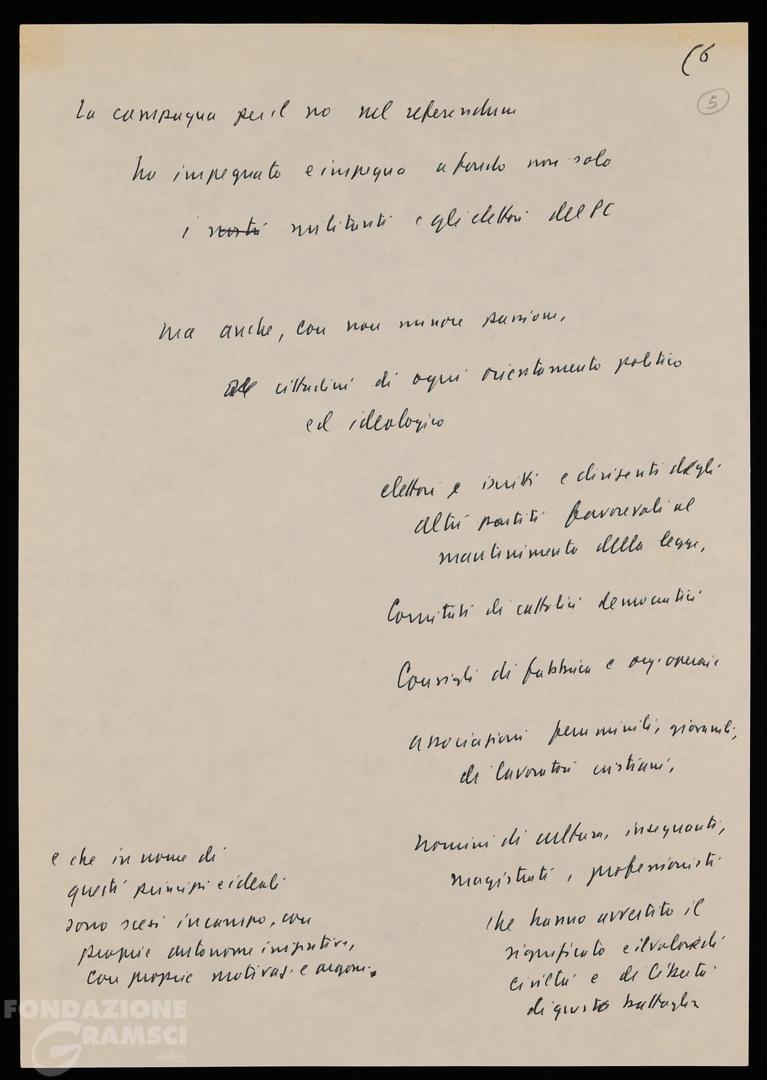 (6
5
La campagna per il no nel referendum
ha impegnato e impegna a fondo non solo
i nostri militanti e gli elettori del PC
ma anche, con non minore passione,
cittadini di ogni orientamento politico
ed ideologico
elettori e iscritti e dirigenti degli
altri partiti favorevoli al
mantenimento della legge,
Comitati di cattolici democratici
Consigli di fabbrica e org. operaie
associazioni femminili, giovanili,
di lavoratori cristiani,
uomini di cultura, insegnanti,
magistrati, professionisti
che hanno avvertito il
significato e il valore di
civiltà e di libertà
di questa battaglia
e che in nome di
questi principi e ideali
sono scesi in campo, con
proprie autonome iniziative,
con proprie motivaz. e argom.
FONDAZIONE
GRAMSCI
onlus